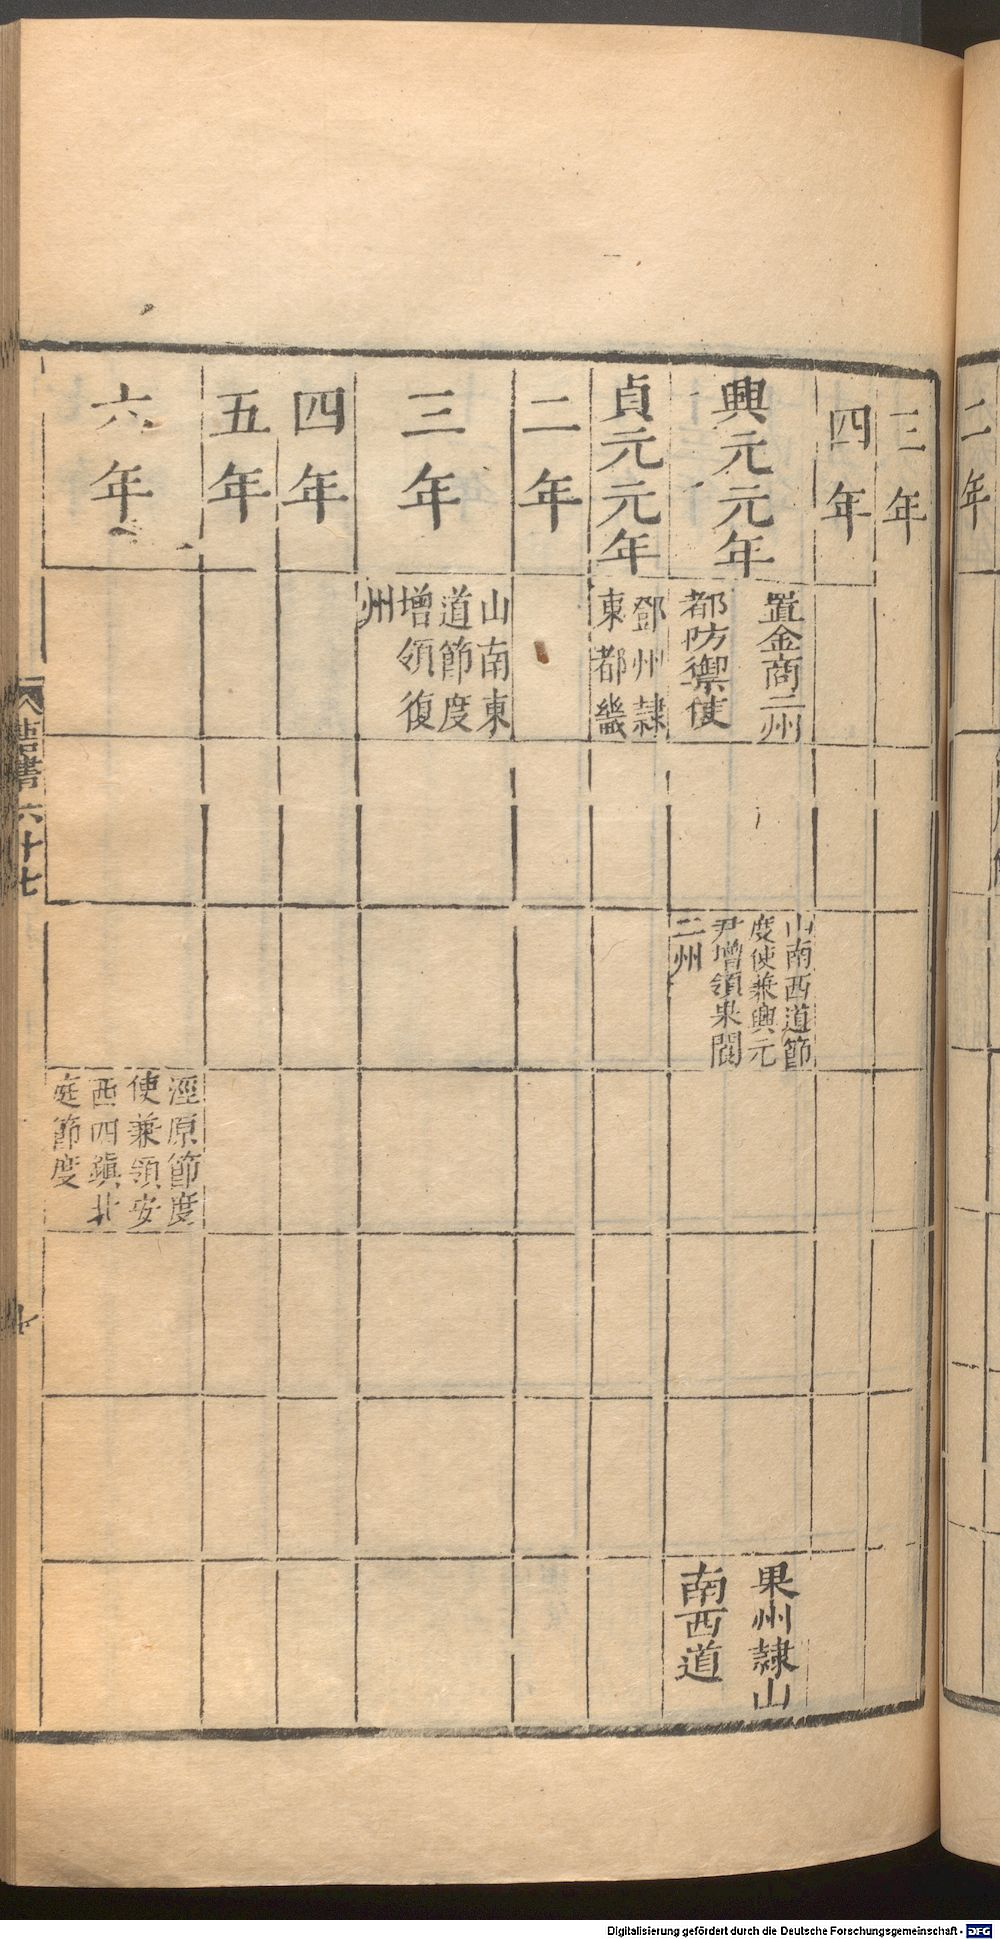 二年
三年
四年
興元元年
置金商二州
都防禦使
山南西道節
度使兼興元
尹增領果閬
二州
果州隸山
南西道
貞元元年
鄧州隸
東都畿
二年
三年
山南東
道節度
增領復
州
四年
五年
六年
涇原節度
使兼領安
西四鎮北
庭節度
唐書六十七
Digitalisierung gefördert durch die Deutsche Forschungsgemeinschaft - DFG